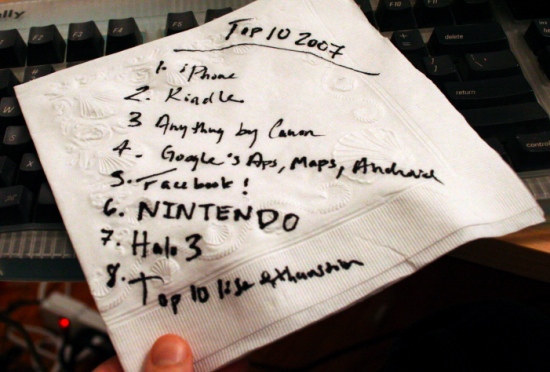 ally
F3
F4
F10
F11
delete
return
control
W
S
Top 10 2007
1. iPhone
2. Kindle
3 Anything by Canon
4. Google's Aps, Maps, Android
5. Facebook!
6. NINTENDO
7. Halo 3
8. Top 10 list exhaustion